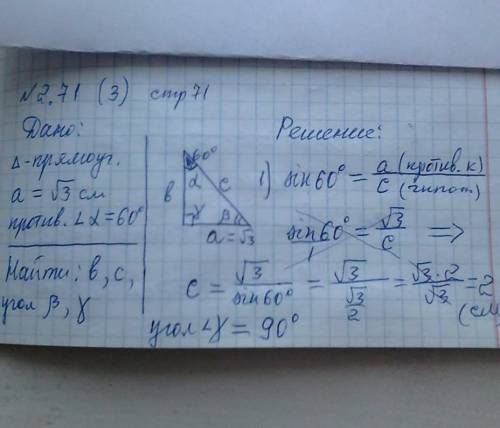 №2.71 (3) стр71
Дано:
Δ-прямоуг.
a = √3 см
против. ∠α = 60°
Найти: в, с,
угол β, γ
60°
α
в
с
γ
β
a = √3
Решение:
1) sin60° = a (против. к) / c (гипот)
sin60° / 1 = √3 / c ⟹
c = √3 / sin60° = √3 / (√3/2) = √3·2 / √3 = 2
(см
угол ∠γ = 90°